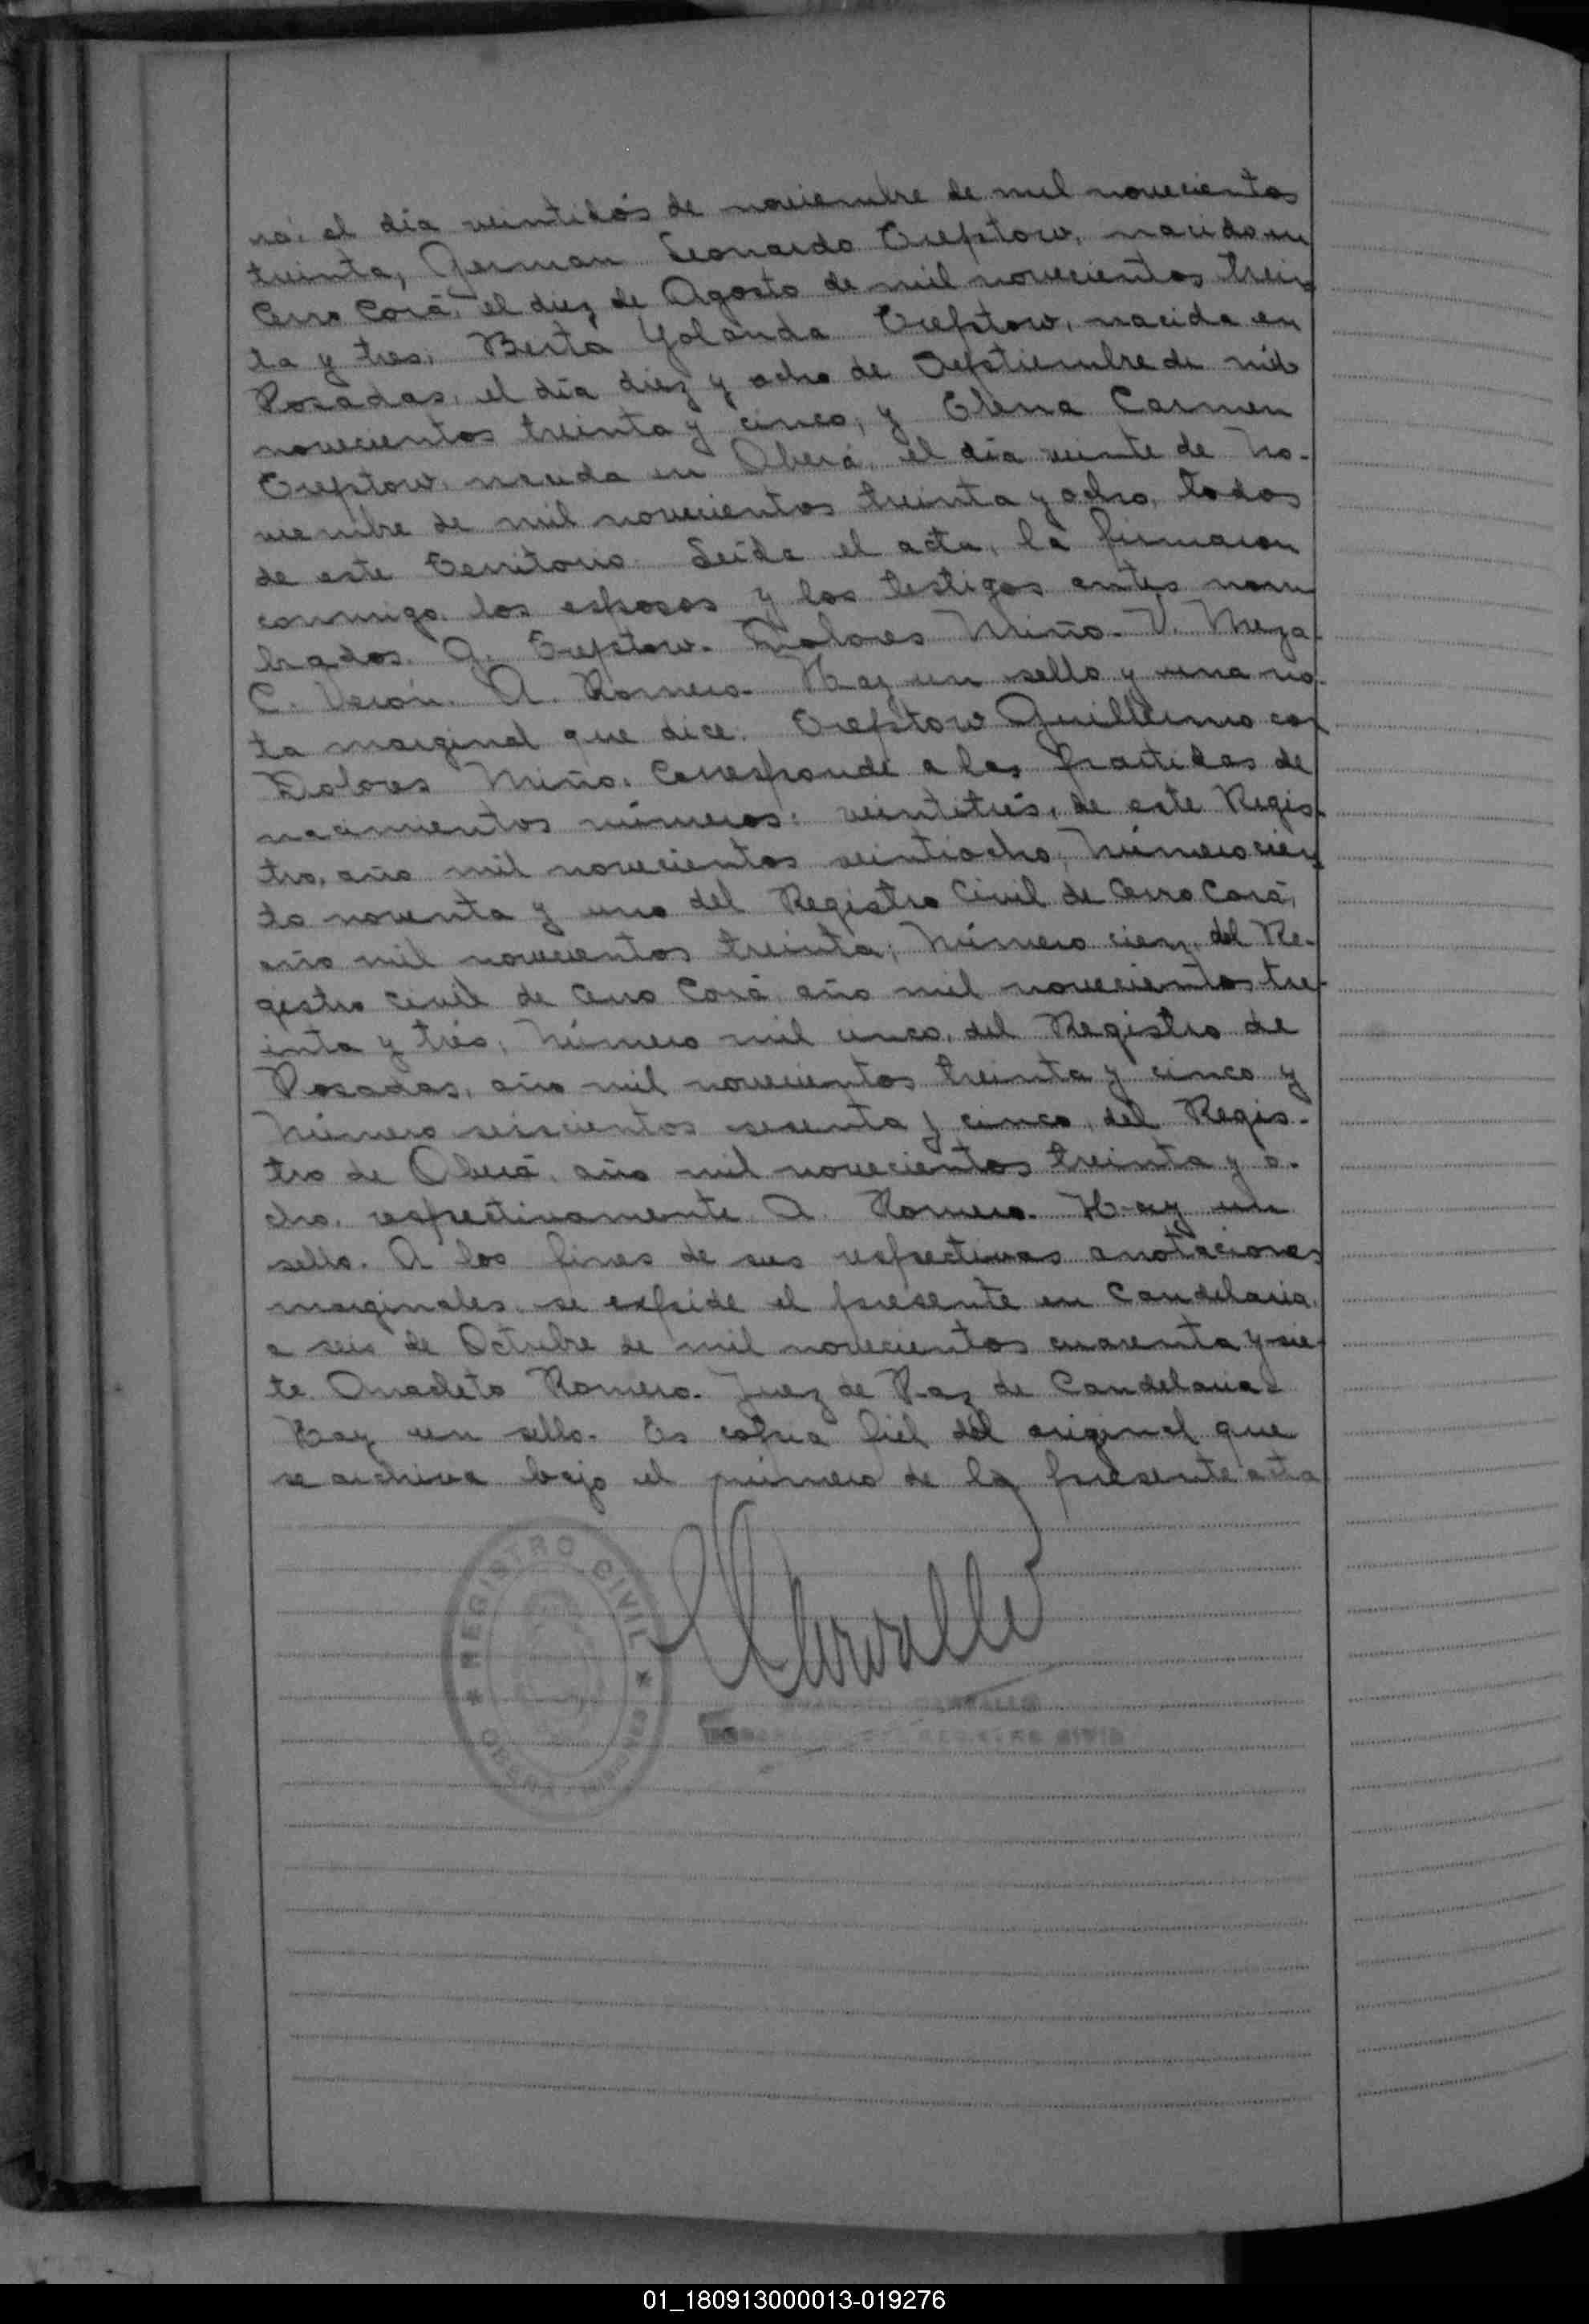 rá, el día veintidós de noviembre de mil novecientos
treinta, German Leonardo Treptow, nacido en
Cerro Corá, el diez de Agosto de mil novecientos trein
ta y tres; Berta Yolanda Treptow, nacida en
Posadas, el día diez y ocho de Septiembre de mil
novecientos treinta y cinco, y Elena Carmen
Treptow, nacida en Oberá, el día veinte de No-
viembre de mil novecientos treinta y ocho, todos
de este Territorio. Leída el acta, la firmaron
conmigo, los esposos y los testigos antes nom
brados. G. Treptow. Dolores Miño. V. Meza
C. Verón. A. Romero. Hay un sello y una no-
ta marginal que dice: Treptow Guillermo con
Dolores Miño. Corresponde a las partidas de
nacimientos números: veintitrés, de este Regis-
tro, año mil novecientos veintiocho; Número cien
to noventa y uno del Registro Civil de Cerro Corá,
año mil novecientos treinta; Número cien, del Re-
gistro Civil de Cerro Corá, año mil novecientos tre-
inta y trés; Número mil cinco, del Registro de
Posadas, año mil novecientos treinta y cinco y
Número seiscientos sesenta y cinco, del Regis-
tro de Oberá, año mil novecientos treinta y o-
cho, respectivamente. A. Romero. Hay un
sello. A los fines de sus respectivas anotaciones
marginales, se expide el presente en Candelaria,
a seis de Octubre de mil novecientos cuarenta y sie-
te. Anacleto Romero. Juez de Paz de Candelaria.
Hay un sello. Es copia fiel del original que
se archiva bajo el número de la presente acta
REGISTRO CIVIL
OBERA
CARBALLO
REGISTRO CIVIL
01_180913000013-019276